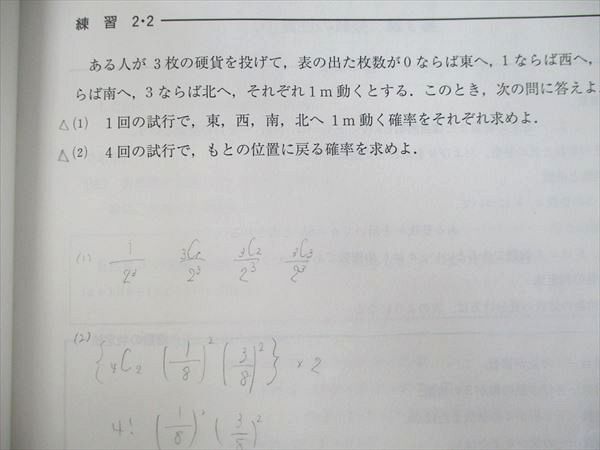 練 習 2・2
ある人が 3 枚の硬貨を投げて，表の出た枚数が 0 ならば東へ，1 ならば西へ，
らば南へ，3 ならば北へ，それぞれ 1 m 動くとする．このとき，次の問に答えよ．
△(1) 1 回の試行で，東，西，南，北へ 1 m 動く確率をそれぞれ求めよ．
△(2) 4 回の試行で，もとの位置に戻る確率を求めよ．
(1) 1/2³ ₃C₁/2³ ₃C₂/2³ ₃C₃/2³
(2)
{₄C₂ (1/8)² (3/8)²} × 2
4! (1/8)² (3/8)²